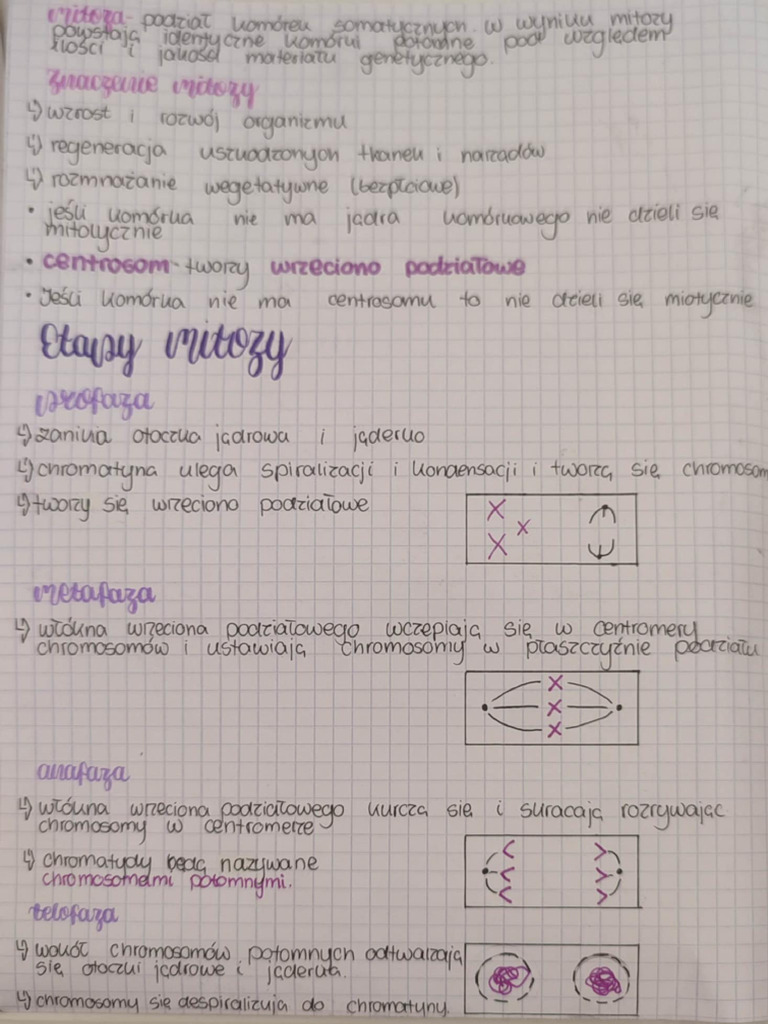 mitoza - podział komórek somatycznych. w wyniku mitozy
powstają identyczne komórki potomne pod względem
ilości i jakości materiału genetycznego.
znaczenie mitozy
↳ wzrost i rozwój organizmu
↳ regeneracja uszkodzonych tkanek i narządów
↳ rozmnażanie wegetatywne (bezpłciowe)
• jeśli komórka nie ma jądra komórkowego nie dzieli się
mitotycznie
• centrosom - tworzy wrzeciono podziałowe
• Jeśli komórka nie ma centrosomu to nie dzieli się miotycznie
Etapy mitozy
profaza
↳ zanika otoczka jądrowa i jąderko
↳ chromatyna ulega spiralizacji i kondensacji i tworzą się chromosom
↳ tworzy się wrzeciono podziałowe
metafaza
↳ włókna wrzeciona podziałowego wczepiają się w centromery
chromosomów i ustawiają chromosomy w płaszczyźnie podziału
anafaza
↳ włókna wrzeciona podziałowego kurczą się i skracają rozrywając
chromosomy w centromerze
↳ chromatydy będą nazywane
chromosomami potomnymi.
telofaza
↳ wokół chromosomów potomnych odtwarzają
się otoczki jądrowe i jąderka.
↳ chromosomy się despiralizują do chromatyny.